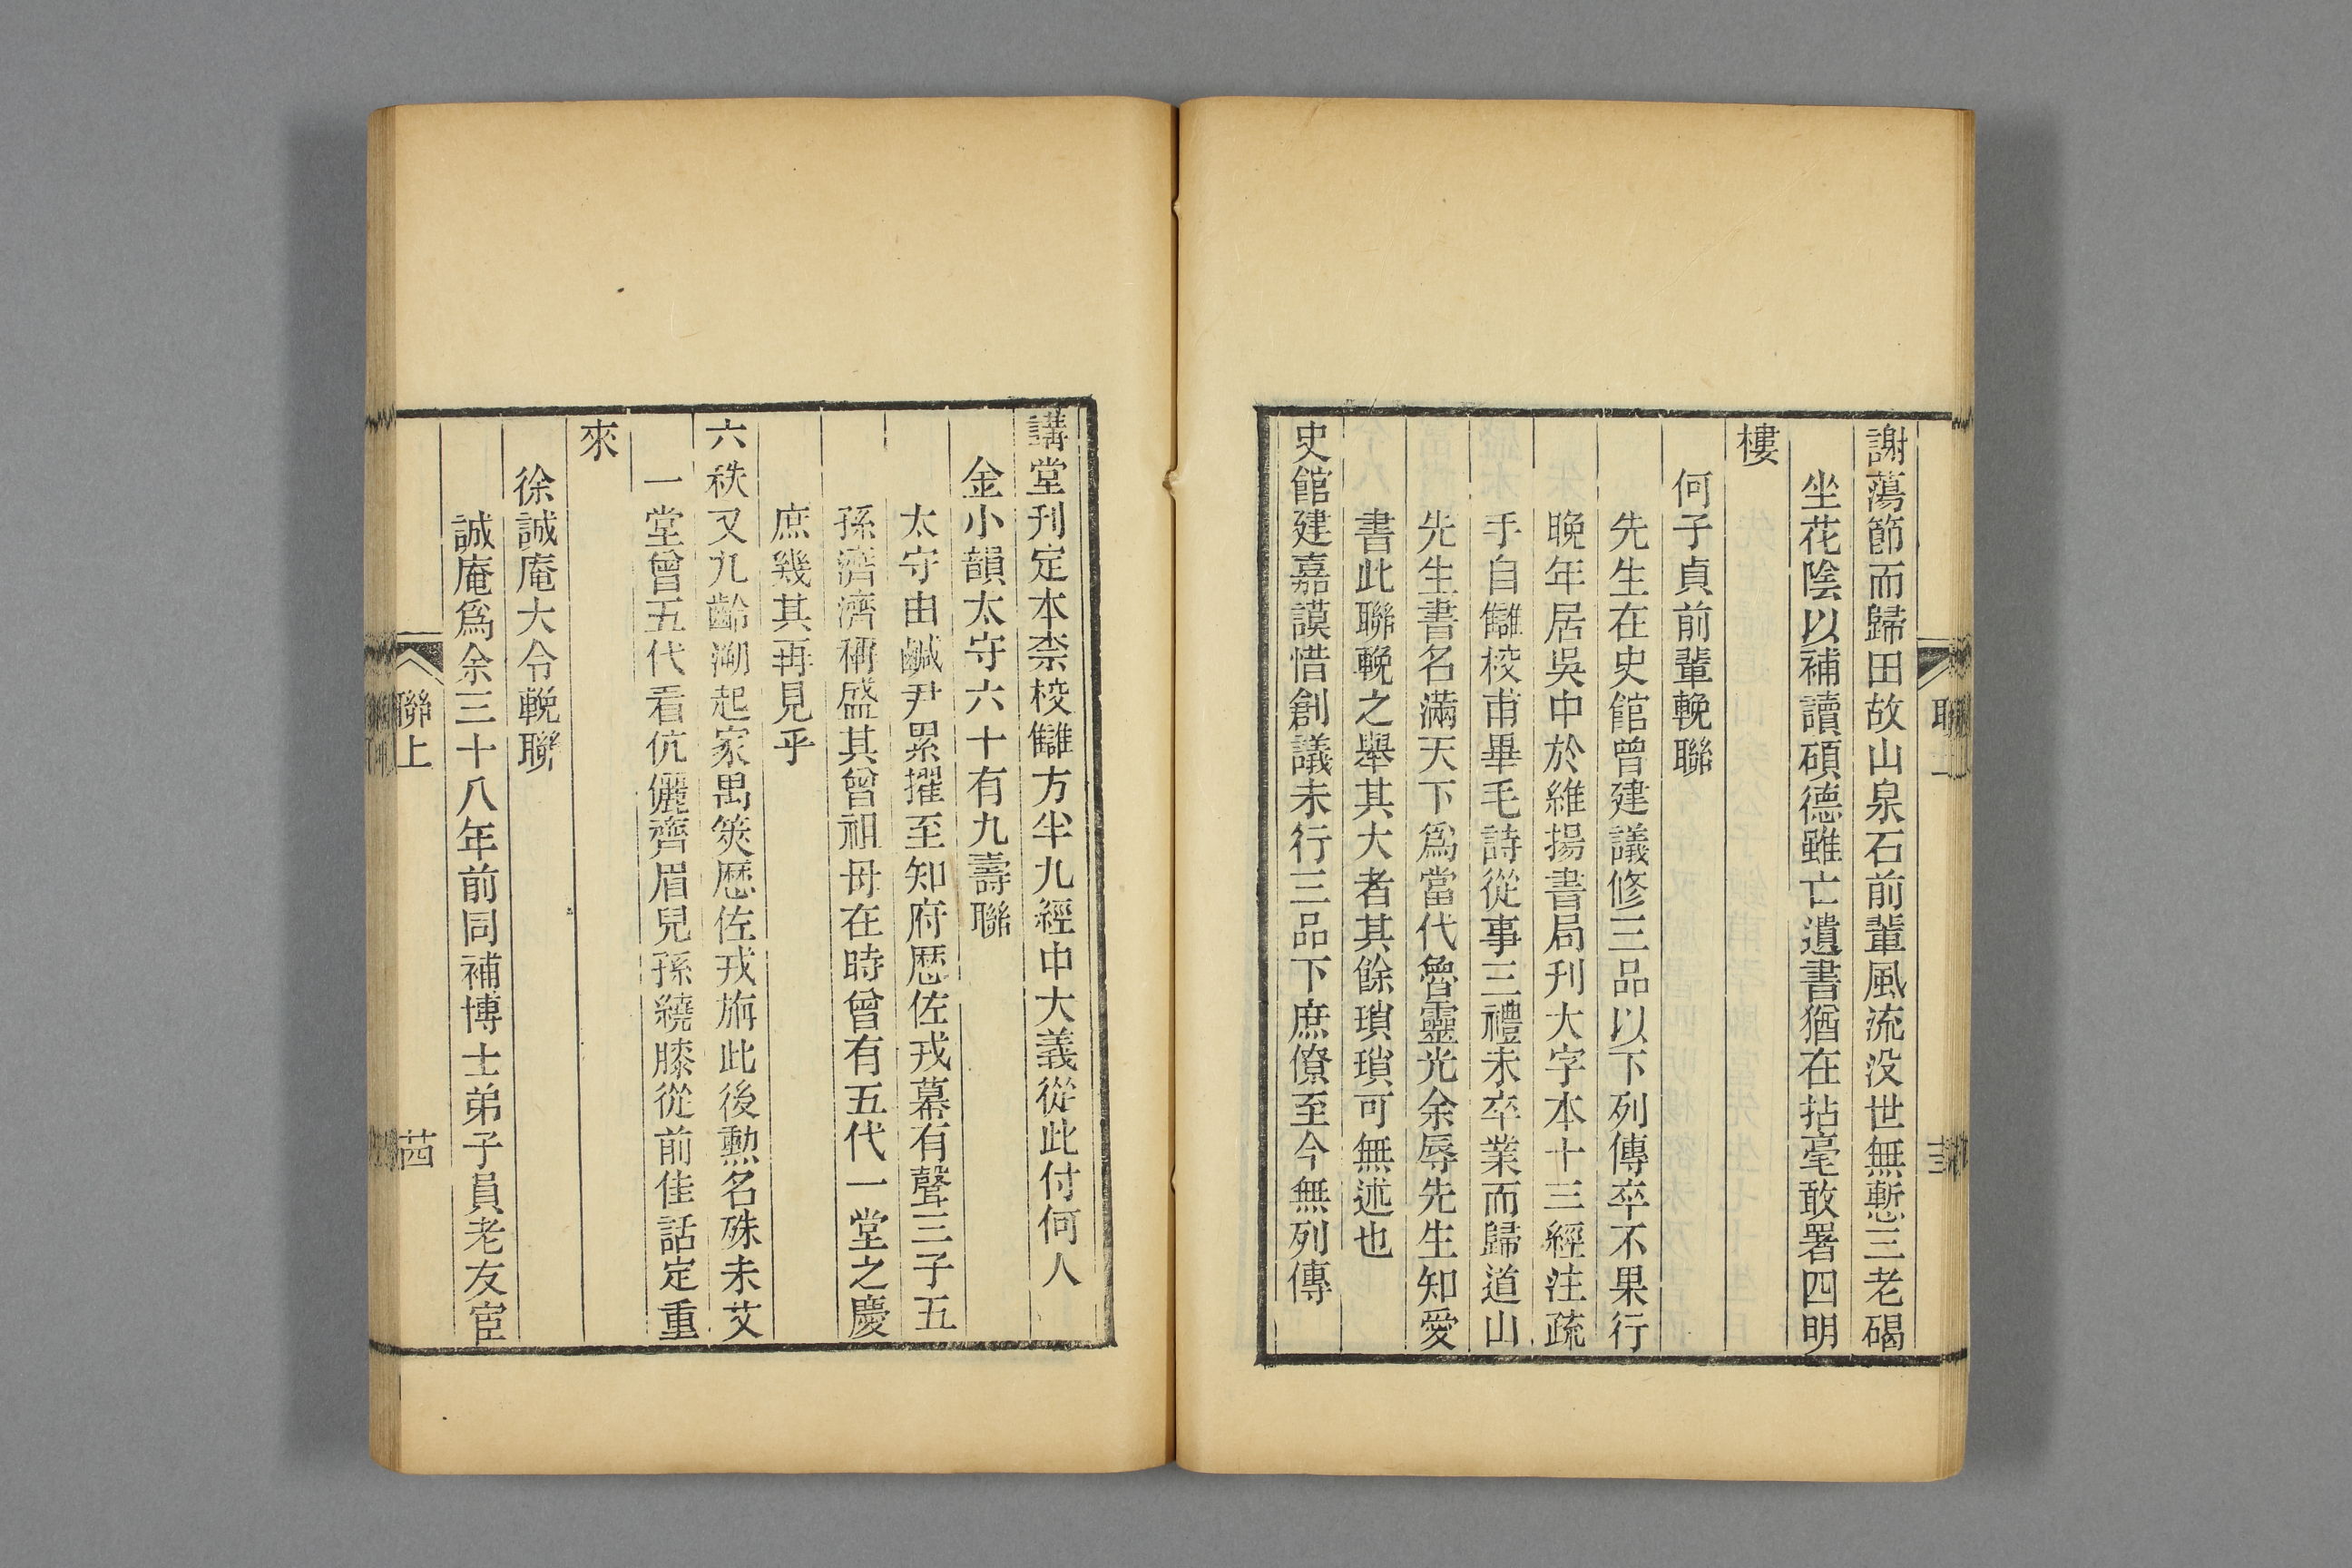 謝蕩節而歸田故山泉石前輩風流没世無慙三老碣
坐花陰以補讀碩德雖亡遺書猶在拈毫敢署四明
樓
何子貞前輩輓聯
先生在史館曾建議修三品以下列傳卒不果行
晚年居吳中於維揚書局刊大字本十三經注疏
手自讎校甫畢毛詩從事三禮未卒業而歸道山
先生書名滿天下爲當代魯靈光余辱先生知愛
書此聯輓之舉其大者其餘瑣瑣可無述也
史館建嘉謨惜創議未行三品下庶僚至今無列傳
講堂刊定本柰校讎方半九經中大義從此付何人
金小韻太守六十有九壽聯
太守由鹹尹累擢至知府歴佐戎幕有聲三子五
孫濟濟稱盛其曾祖母在時曾有五代一堂之慶
庶幾其再見乎
六秩又九齡溯起家禺筴歴佐戎旃此後勲名殊未艾
一堂曾五代看伉儷齊眉兒孫繞膝從前佳話定重
來
徐誠庵大令輓聯
誠庵爲余三十八年前同補博士弟子員老友宦
聯上